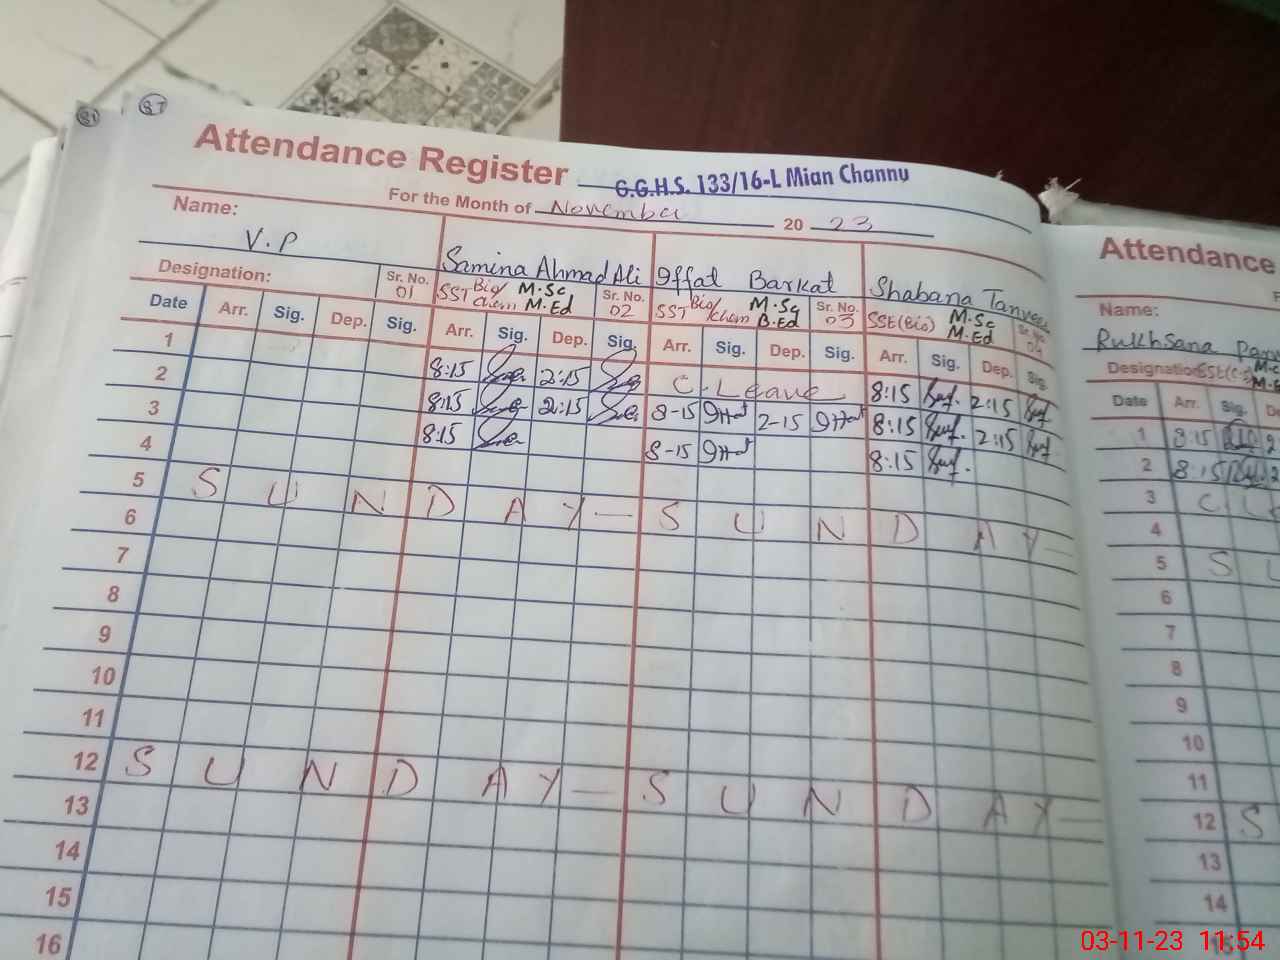 81
87
Attendance Register G.G.H.S. 133/16-L Mian Channu
For the Month of November 20 23
Name:
V.P
Samina Ahmad Ali
Iffat Barkat
Shabana Tanveer
Designation:
Sr. No. 01
SST Bio/Chem M.Sc M.Ed Sr. No. 02
SST Bio/Chem M.Sc B.Ed Sr. No. 03
SSE(Bio) M.Sc M.Ed Sr. No. 04
Date Arr. Sig. Dep. Sig. Arr. Sig. Dep. Sig. Arr. Sig. Dep. Sig. Arr. Sig. Dep. Sig.
1 8:15 2:15 C. Leave 8:15 2:15
2 8:15 2:15 8-15 Iffat 2-15 Iffat 8:15 2:15
3 8:15 8-15 Iffat 8:15
4
5 S U N D A Y — S U N D A Y —
6
7
8
9
10
11
12 S U N D A Y — S U N D A Y —
13
14
15
16
Attendance
Name:
Rukhsana
Designation:
Date Arr. Sig.
1 8:15
2 8:15
3 C
4
5 S U
6
7
8
9
10
11
12 S
13
14
15
03-11-23 11:54